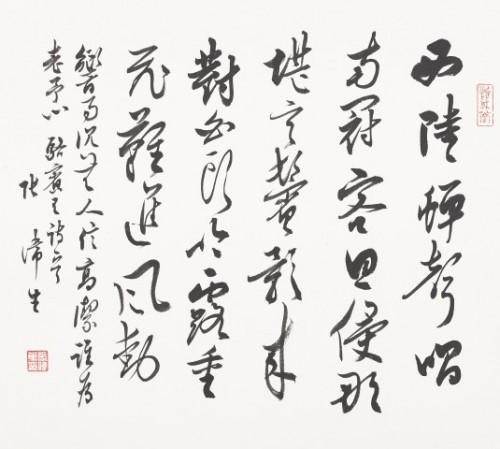 西陸蟬聲唱
南冠客思侵那
堪玄鬢影来
對白頭吟露重
飛難進風
響易沉無人信高潔誰為
表予心 駱賓王詩
張生